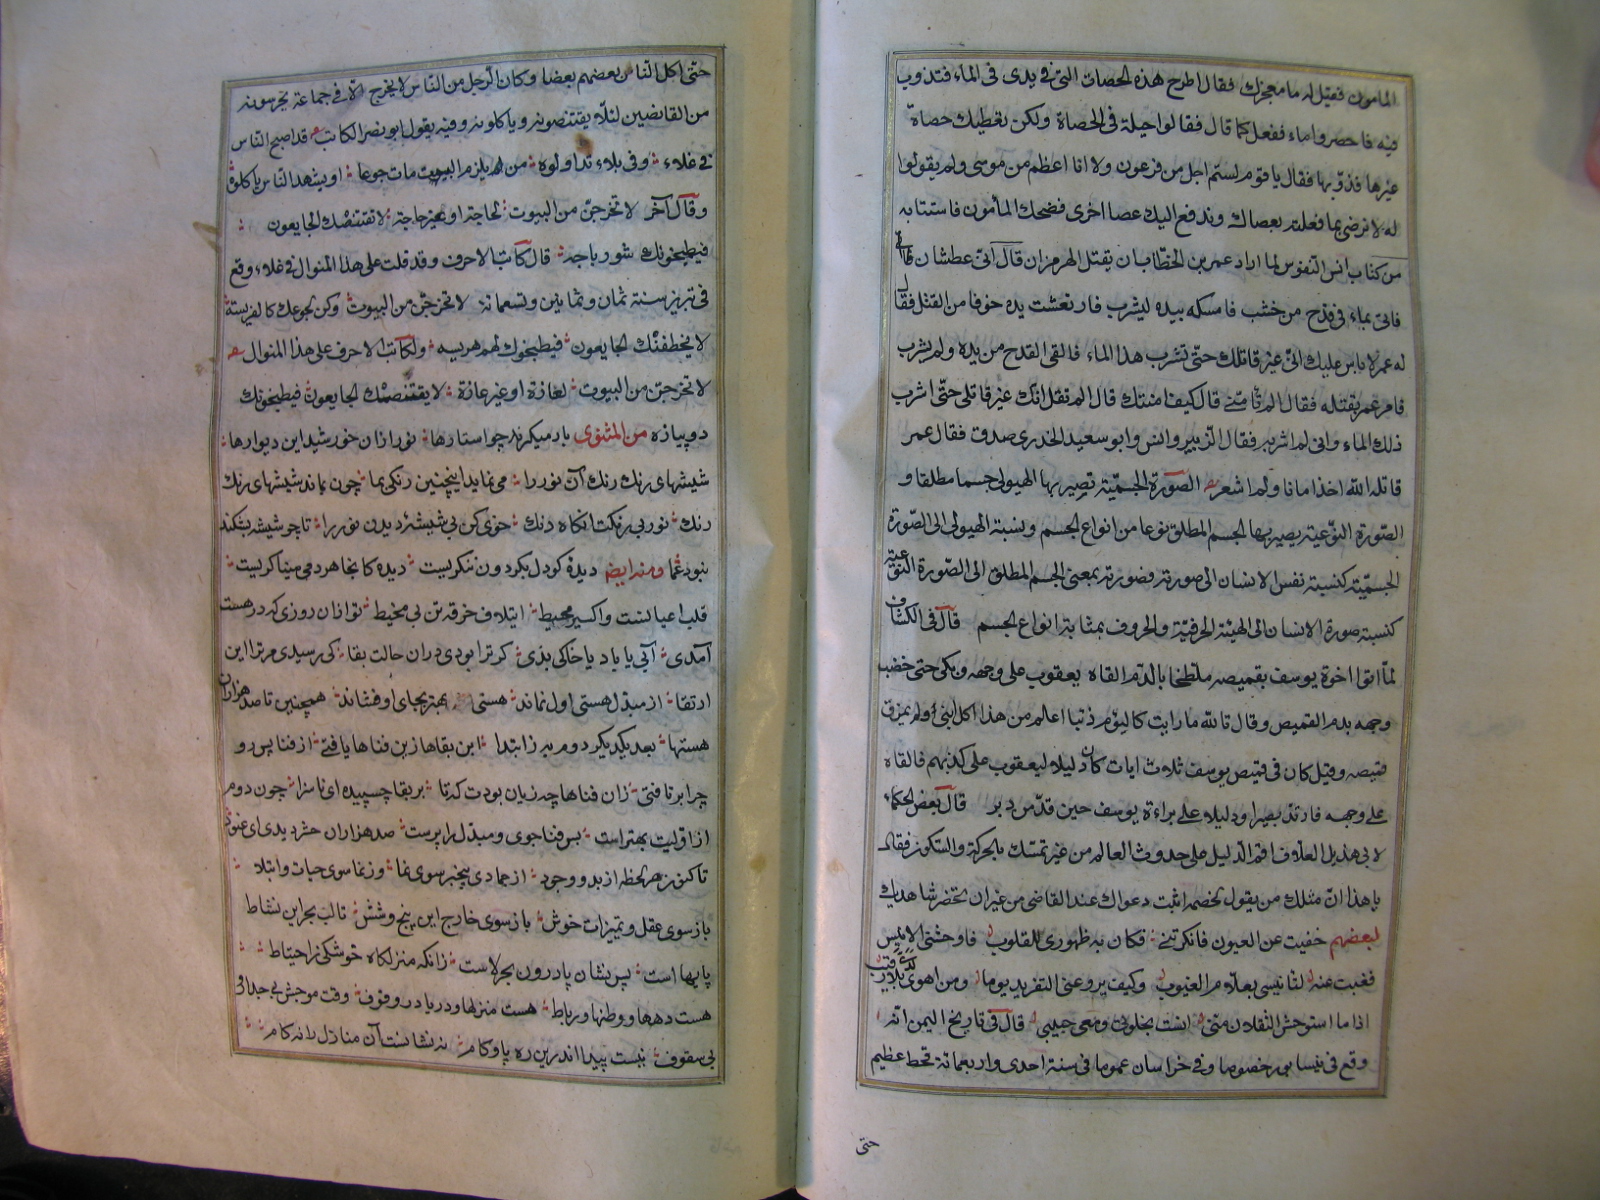 المأمون فقيل له ما معجزتك فقال اطرح هذه الحصات التي في يدي في الماء فتذوب
فيه فاحضروا ماء ففعل كما قال فقالوا حيلة في الحصاة ولكن نعطيك حصاة
غيرها فذوّبها فقال يا قوم لستم اجل من فرعون ولا انا اعظم من موسى ولم يقولوا
له لا نرضى بما فعلته بعصاك وندفع اليك عصا اخرى فضحك المأمون فاستتابه
من كتاب انس النفوس لما اراد عمر بن الخطاب ان يقتل الهرمزان قال انى عطشان
فاتى بماء في قدح من خشب فامسكه بيده ليشرب فارتعشت يده خوفا من القتل فقال
له عمر لا باس عليك انى غير قاتلك حتّى تشرب هذا الماء فالقى القدح من يده ولم يشرب
فامر عمر بقتله فقال الم تامنّى قال كيف امنتك قال الم تقل انك غير قاتلى حتّى اشرب
ذلك الماء وانى لم اشربه فقال الزبير وانس وابو سعيد الخدرى صدق فقال عمر
قاتله الله اخذ امانا ولم اشعر الصورة الجسميّة تصير بها الهيولى جسما مطلقا و
الصّورة النوّعيّة يصير بها الجسم المطلق نوعا من انواع الجسم ونسبة الهيولى الى الصّورة
الجسميّة كنسبة نفس الانسان الى صورته فصورته بمعنى الجسم المطلق الى الصّورة النوّعيّة
كنسبة صورة الانسان الى الهيئة الحرفيّة والحروف بمثابة انواع الجسم قال فى الكشاف
لمّا اتوا اخوة يوسف بقميصه ملطخا بالدّم القاه يعقوب على وجهه وبكى حتى خضب
وجهه بدم القميص وقال تالله ما رايت كاليوم ذئبا اعلم من هذا اكل ابنى ولم يمزق
قميصه وقيل كان فى قميص يوسف ثلاث ايات كان دليلا ليعقوب على كذبهم فالقاه
على وجهه فارتدّ بصيرا ودليلا على براءة يوسف حين قدّ من دبر قال بعض الحكماء
لابى هذيل العلاف اقم الدّليل على حدوث العالم من غير تمسّك بالحركة والسكون فقال
يا هذا انّ مثلك من يقول لخصمه اثبت دعواك عند القاضى من غير ان تحضر شاهديك
لبعضهم خفيت عن العيون فانكرتنى فكان به ظهورى للقلوب فاوحشنى الانيس
فغبت عنه لتانيسى بعلّام الغيوب وكيف يروعنى التفريد يوما ومن اهوى لدىّ بلا رقيب
اذا ما استوحش الثقلان منّى انست بخلوتى ومعى حبيبى قال فى تاريخ اليمن انّه
وقع فى نيسابور خصوصا وفى خراسان عموما فى سنة احدى واربعمائة قحط عظيم
حتى
حتّى اكل النّاس بعضهم بعضا وكان الرّجل من النّاس لا يخرج الّا فى جماعة يحرسونه
من القانصين لئلّا يقتنصونه وياكلونه وفيه يقول ابو نصر الكاتب قد اصبح الناس
فى غلاء وفى بلاء تداولوه من لم يلزم البيوت مات جوعا او يشهد الناس ياكلوه
وقال اخر لا تخرجنّ من البيوت لحاجة او غير حاجة لا تقتنصك الجايعون
فيطبخونك شورباجة قال كاتب الاحرف وقد قلت على هذا المنوال فى غلاء وقع
فى تبريز سنة ثمان وثمانين وتسعمائة لا تخرجنّ من البيوت وكن بجوعك كالفريسة
لا يخطفنّك الجايعون فيطبخوك لهم هريسه ولكاتب الاحرف على هذا المنوال
لا تخرجنّ من البيوت لغازة او غير غازة لا يقتنصنّك الجايعون فيطبخونك
دوپيازه من المثنوى باد ميكرند چو استارها نور ازان خورشيد اين ديوارها
شيشهاى رنك رنك آن نور را مى نمايد اينچنين رنكى بما چون نماند شيشهاى رنك
رنك نور بى رنكت انكاه دنك خوى كن بى شيشهٔ ديدن نور را تا چو شيشه بشكند
نبود عما ومنه ايضا ديدهٔ كو دل بكردون ننكريست ديده كانجا هر دمى ميناكريست
قلب اعيانست واكسير محيط ايتلاف خرقه تن بى مخيط تو ازان روزى كه در هست
آمدى آتى يا باد يا خاكى بدى كر ترا بودى دران حالت بقا كى رسيدى مر ترا اين
ارتقا از مبدل هستى اول نماند هستى بهتر بجاى او فشاند همچنين تا صد هزاران
هستها بعد يكديكر دوم به ز ابتدا اين بقاها زين فناها يافتى از فنا پس رو
چرا بر تافتى زان فناها چه زيان بودت كه تا بر بقا چسپيده اى نا سزا چون دوم
از اوّليت بهتر است پس فنا جوى ومبدل را پرست صد هزاران حشر ديدى اى عنود
تا كنون هر لحظه از بدو وجود از جمادى بيخبر سوى نما وز نما سوى حيات وابتلا
باز سوى عقل وتميزات خوش باز سوى خارج اين پنج وشش تا لب بحر اين نشاط
پايها است پس نشان پا درون بحر لاست زانكه منزلكاه خوشكى ز احتياط
هست دهها ووطنها ورباط هست منزلها ودريا در وقوف وقت موجش بى جدا فى
بى سقوف نيست پيدا اندرين ره پا وكام نه نشانست آن منازل را نه كام